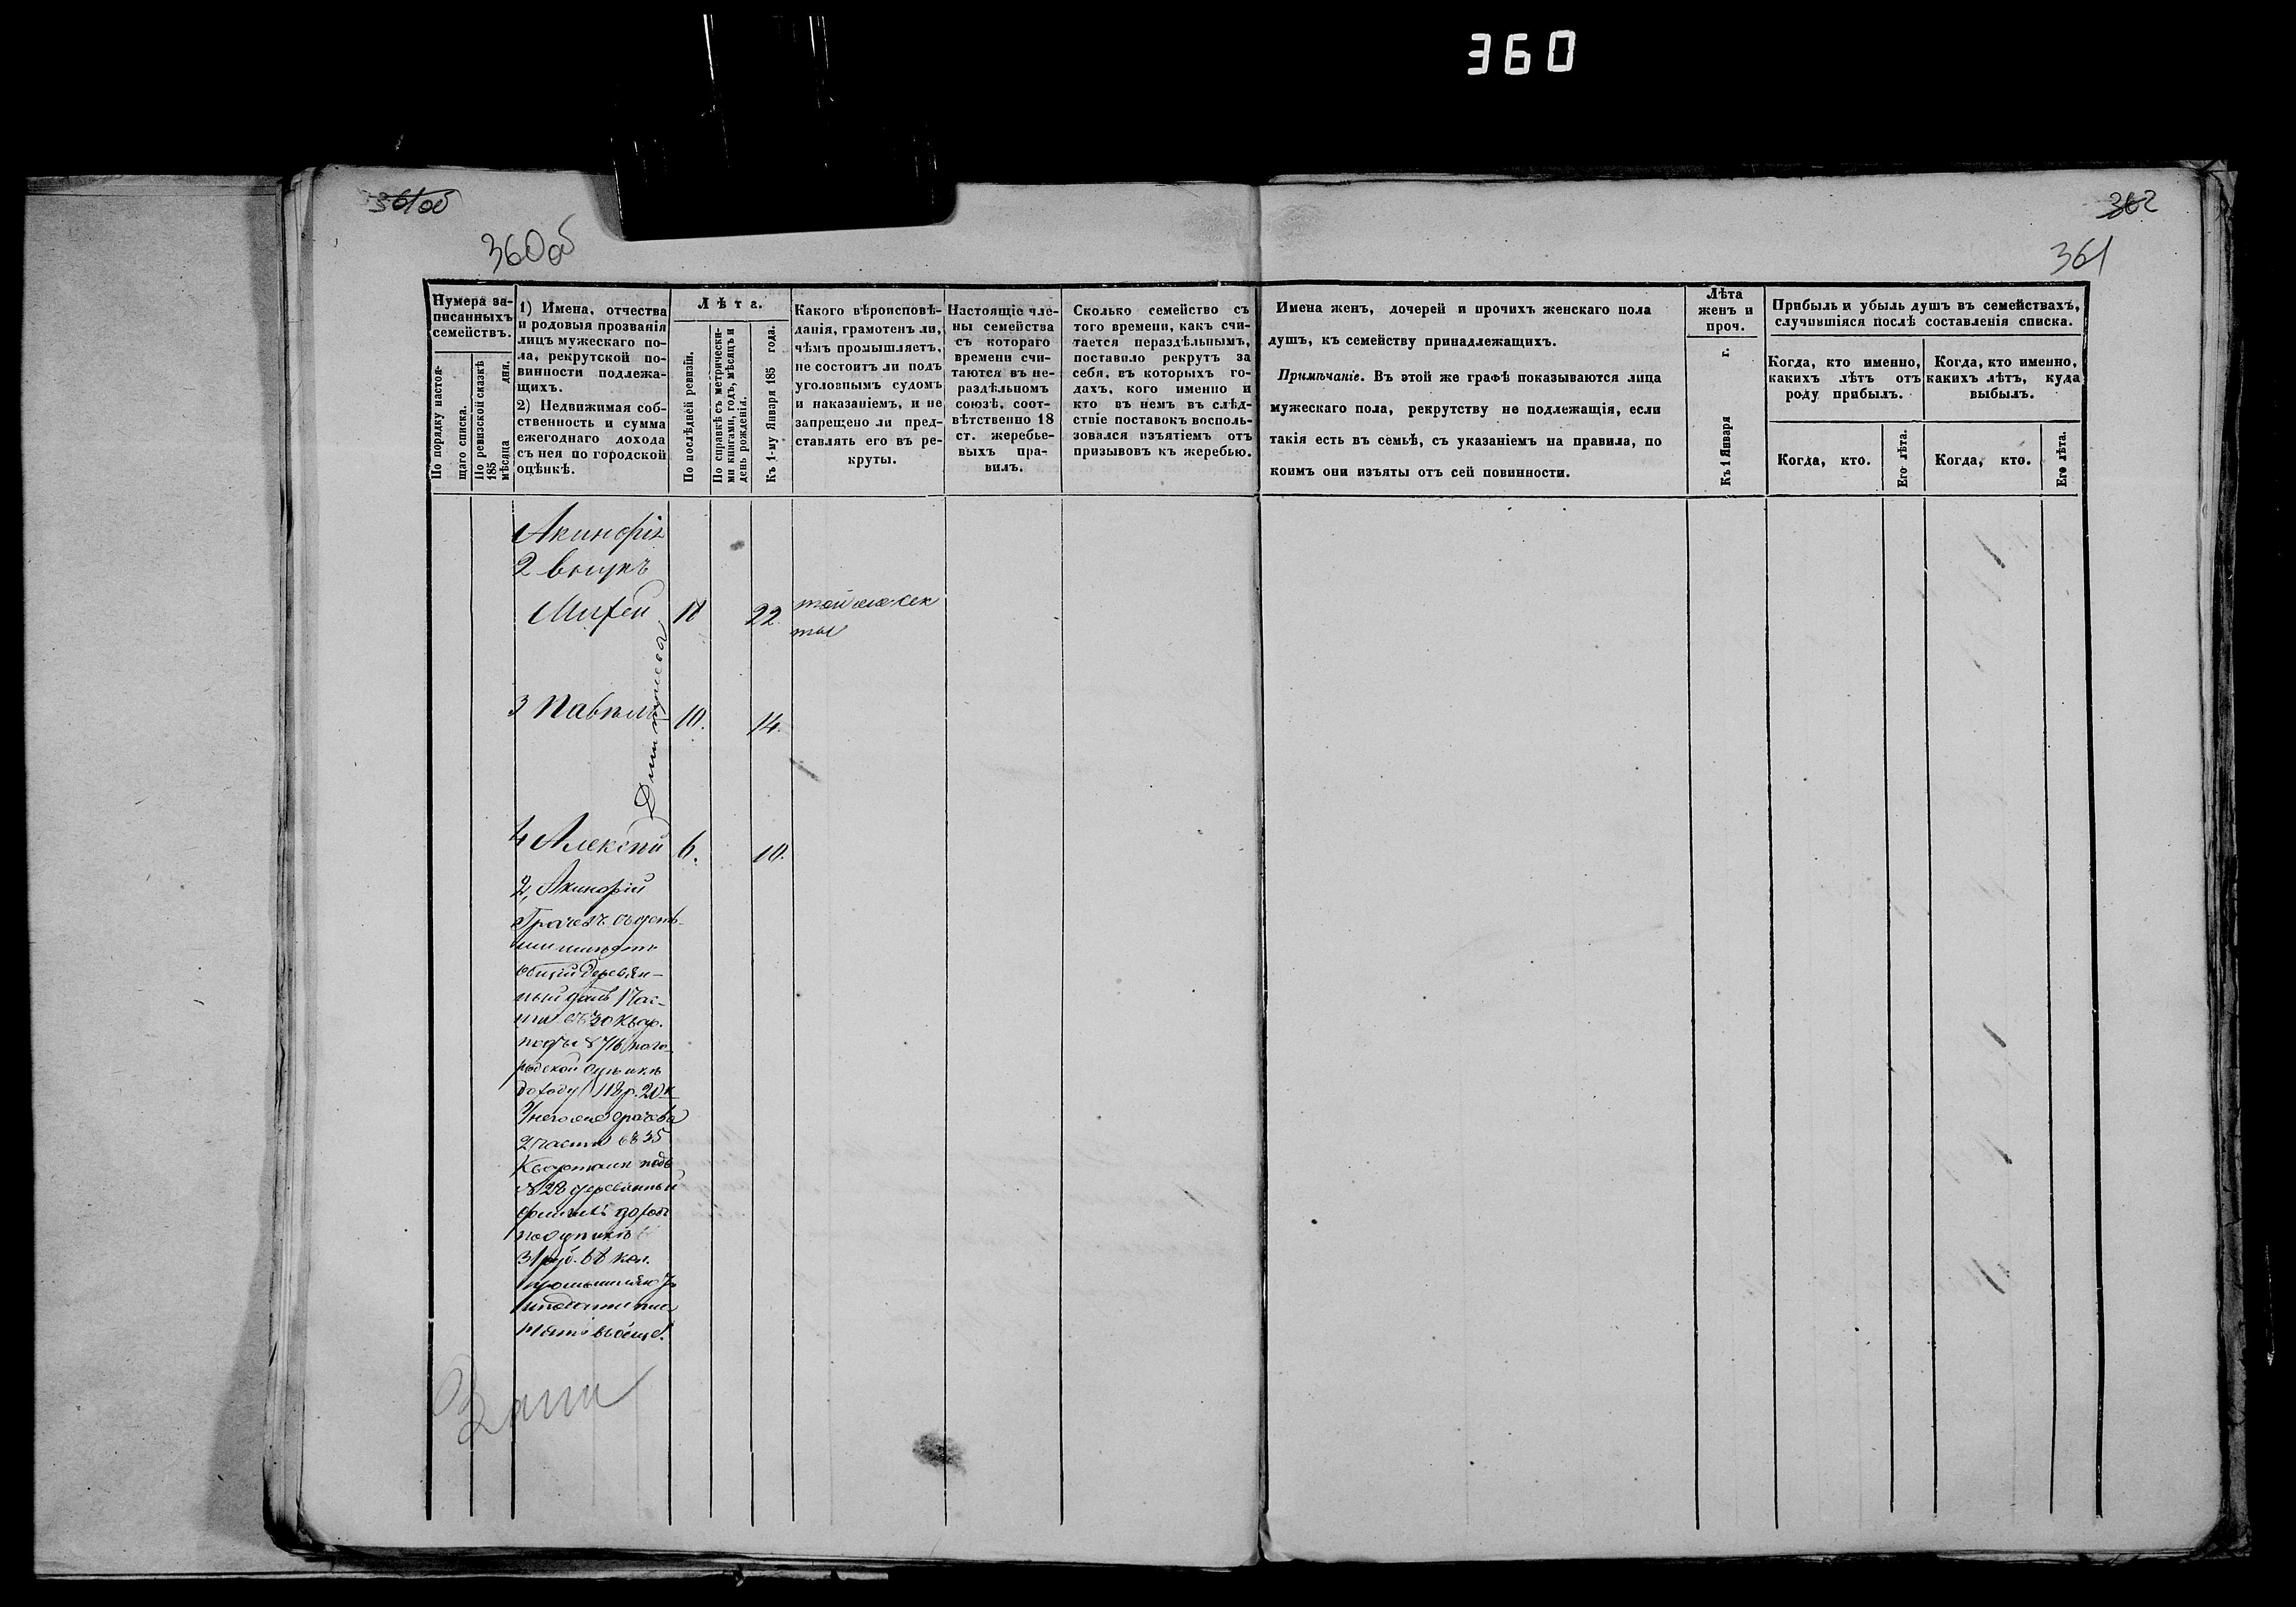 360
361об
360об
362
361
Нумера за-
писанныхъ
семействъ.
По порядку настоя-
щаго списка.
По ревизской сказкѣ
185 мѣсяца дня.
1) Имена, отчества
и родовыя прозванія
лицъ мужескаго по-
ла, рекрутской по-
винности подлежа-
щихъ.
2) Недвижимая соб-
ственность и сумма
ежегоднаго дохода
съ нея по городской
оцѣнкѣ.
Лѣта.
По послѣдней ревизіи.
По справкѣ съ метрически-
ми книгами, годъ, мѣсяцъ и
день рожденія.
Къ 1-му Января 185 года.
Какого вѣроисповѣ-
данія, грамотенъ ли,
чѣмъ промышляетъ,
не состоитъ ли подъ
уголовнымъ судомъ
и наказаніемъ, и не
запрещено ли пред-
ставлять его въ ре-
круты.
Настоящіе чле-
ны семейства
съ котораго
времени счи-
таются въ не-
раздѣльномъ
союзѣ, соот-
вѣтственно 18
ст. жеребье-
выхъ пра-
вилъ.
Сколько семейство съ
того времени, какъ счи-
тается нераздѣльнымъ,
поставило рекрутъ за
себя, въ которыхъ го-
дахъ, кого именно и
кто въ немъ въ слѣд-
ствіе поставокъ восполь-
зовался изъятіемъ отъ
призывовъ къ жеребью.
Имена женъ, дочерей и прочихъ женскаго пола
душъ, къ семейству принадлежащихъ.
Примѣчаніе. Въ этой же графѣ показываются лица
мужескаго пола, рекрутству не подлежащія, если
такія есть въ семьѣ, съ указаніемъ на правила, по
коимъ они изъяты отъ сей повинности.
Лѣта
женъ и
проч.
Къ 1 Января г.
Прибыль и убыль душъ въ семействахъ,
случившіяся послѣ составленія списка.
Когда, кто именно,
какихъ лѣтъ отъ
роду прибылъ.
Когда, кто именно,
какихъ лѣтъ, куда
выбылъ.
Когда, кто.
Его лѣта.
Когда, кто.
Его лѣта.
Акинфія
2 внукъ
Михей 18 22 той же сек
ты
3 Павелъ 10. 14.
4 Алексѣй 6. 10.
2, Акинфій
Грачевъ съ деть
ми
общій деревян-
ный домъ 1 час-
ти въ 30 квар.
подъ № 716 по го-
родской оцѣнкѣ
доходу 118 р. 20 к
У него же Грачева
2 части въ 35
кварталѣ подъ
№ 28 деревянный
доходъ
по оцѣнкѣ
31 руб. 68 коп.